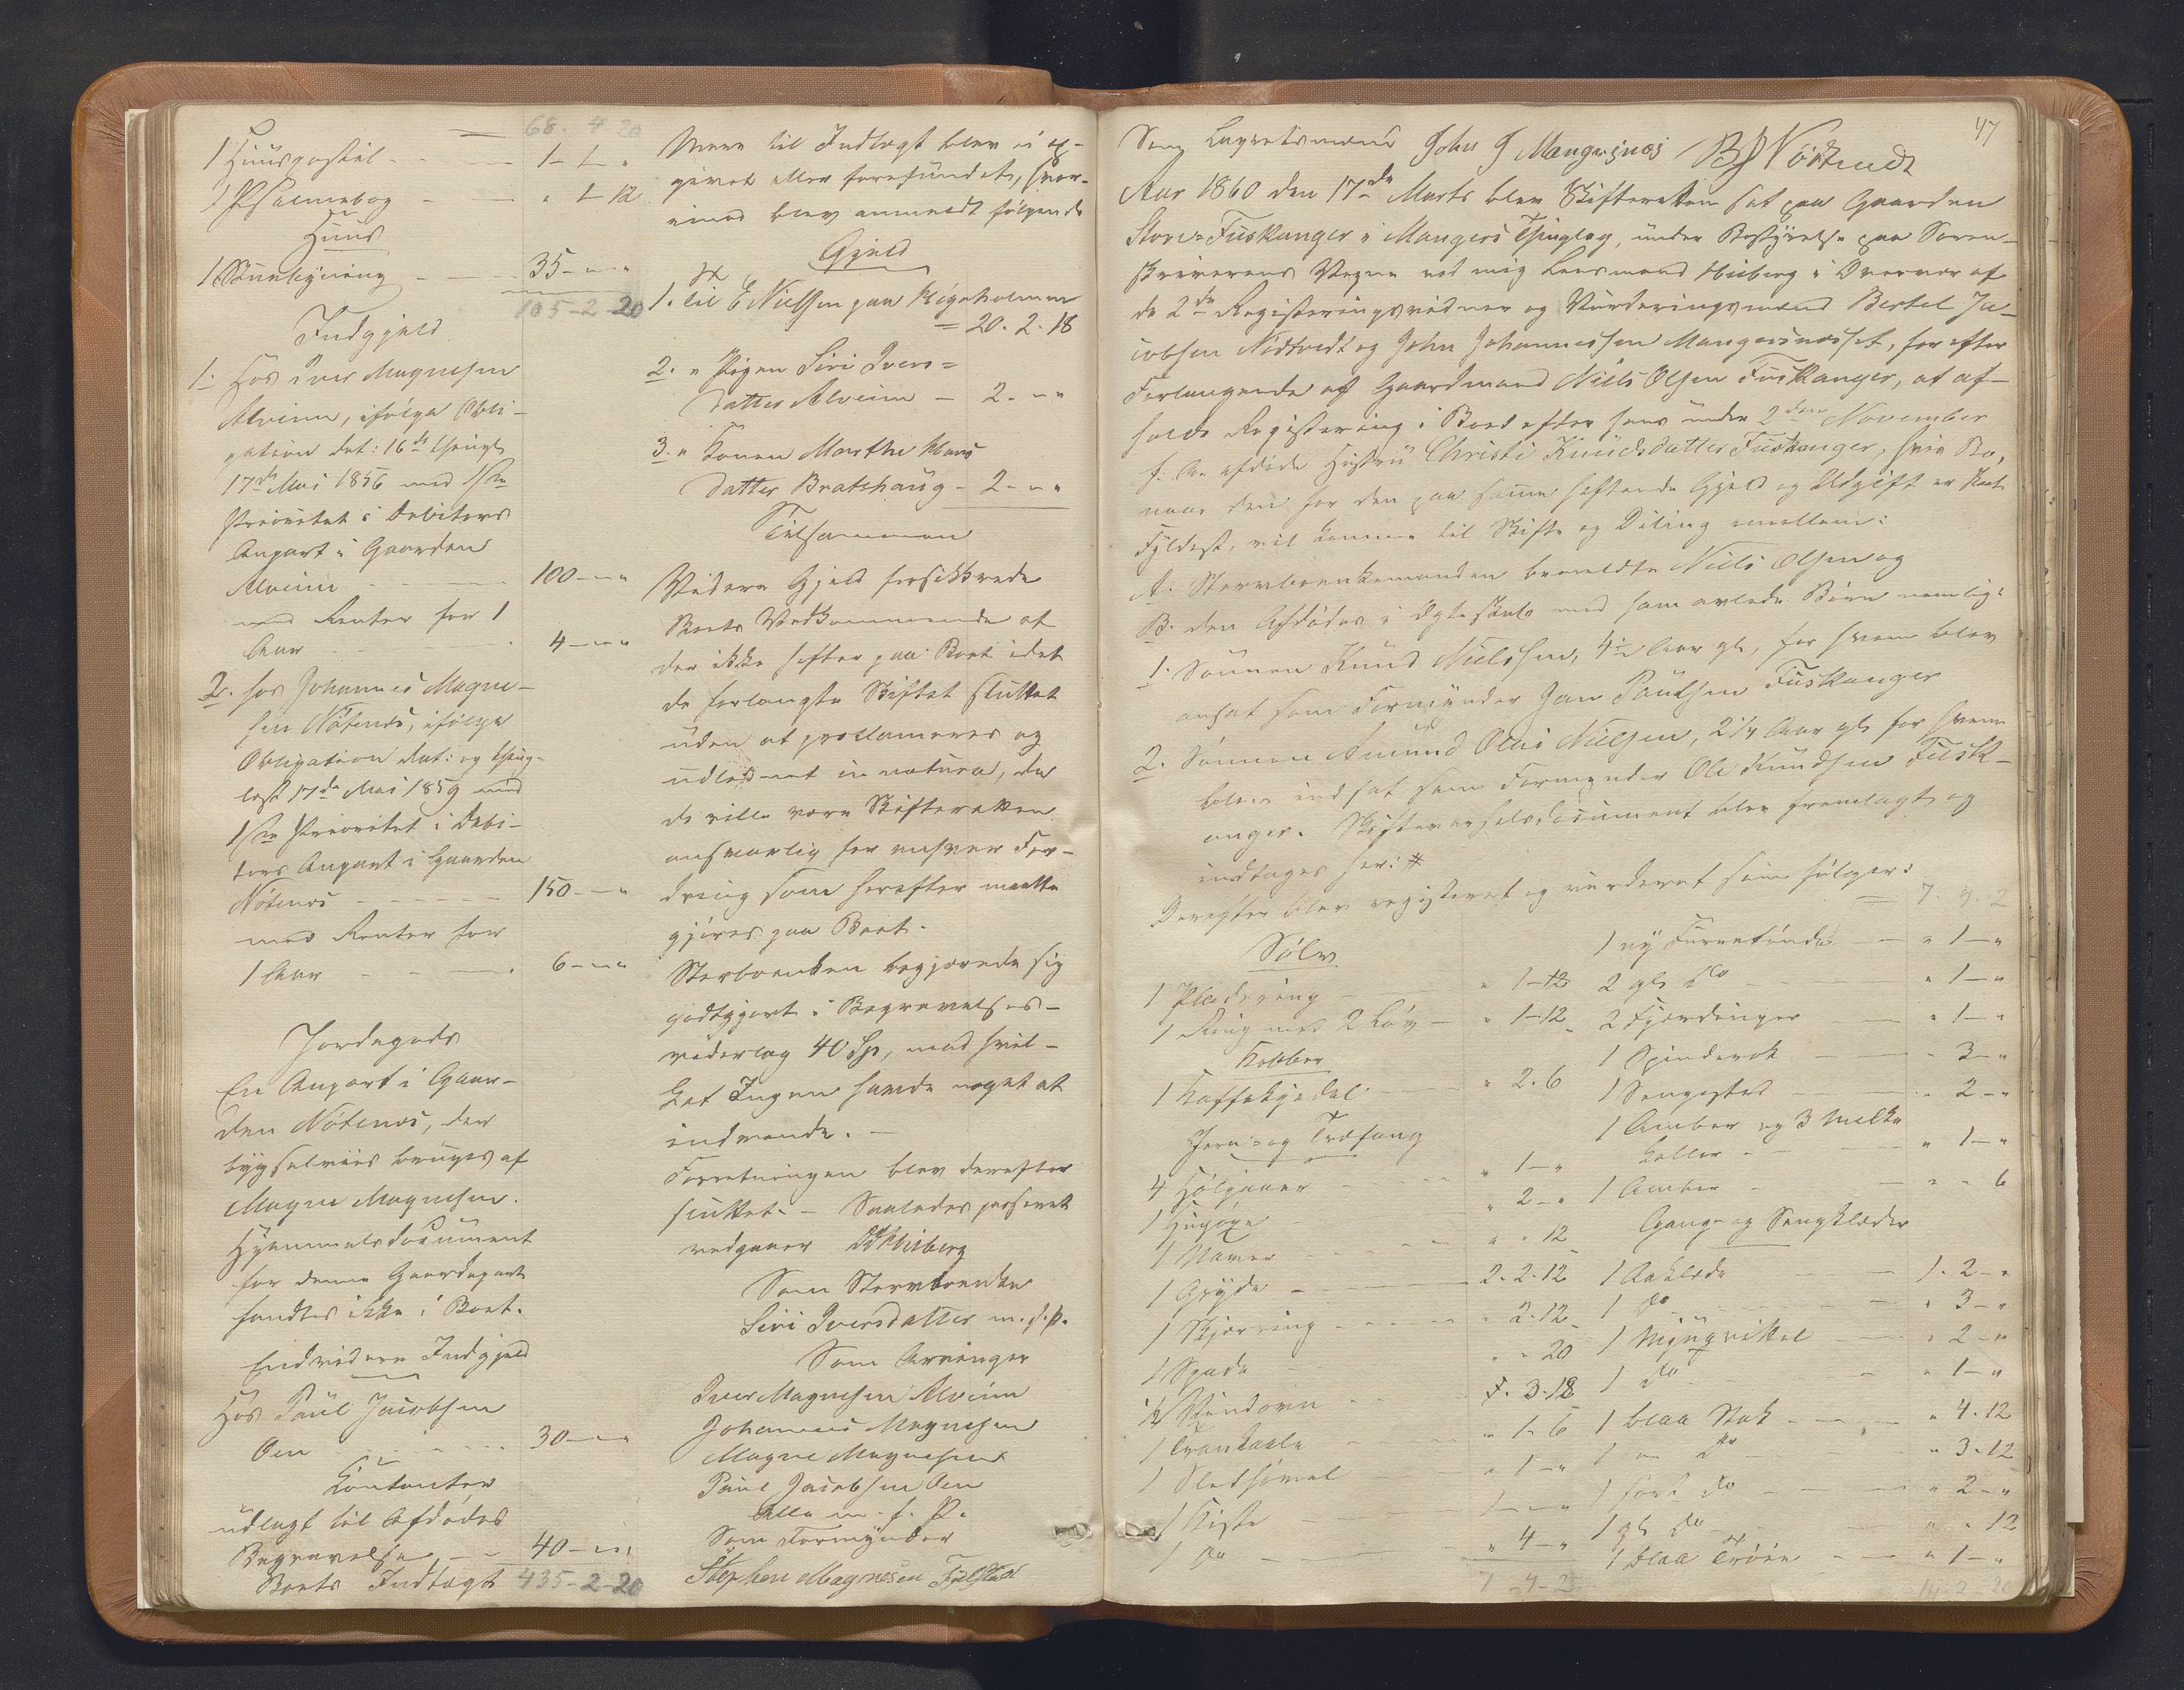 68. 4. 20
1 Huuspostil - - - 1- 1- "
1 Psalmebog - - " 1- 12
Huus
1 Stuebygning - - 35- " "
105-2-20
Indgjeld
1. Hos Iver Magnesen
Alveim, ifølge Obli-
gation dat: 16de thingl.
17de Mai 1856 med 1ste
Prioritet i Debitors
Anpart i Gaarden
Alveim - - - 100- " "
med Renter for 1
Aar - - - 4- " "
2. hos Johannes Magne-
sen Nøtenes, ifølge
Obligation dat: og thing-
læst 17de Mai 1859 med
1ste Prioritet i Debi-
tors Anpart i Gaarden
Nøtenes - - - 150- " "
med Renter for
1 Aar - - - 6- " "
Jordegods
En Anpart i Gaar-
den Nøtenes, der
bygselviis bruges af
Magne Magnesen.
Hjemmelsdocument
for denne Gaardepart
fandtes ikke i Boet.
Endvidere Indgjeld
Hos Paul Jacobsen
Oen - - - 30- " "
Contanter
udlagt til Afdødes
Begravelse - - 40- " "
Boets Indtægt 435-2-20
Mere til Indtægt blev ei op-
givet eller forefundet, hvor-
imod blev anmeldt følgende
Gjeld
1. til E Nielsen paa
= 20. 2. 18
2. " Pigen Siri Ivers=
datter Alveim - 2. - "
3. " Konen Marthe Mons
datter Bratshaug - 2- " "
Tilsammen
Videre Gjeld forsikkrede
Boets Vedkommende at
der ikke hefter paa Boet idet
de forlangte Skiftet sluttet
uden at proclameres og
udlodnet in natura, da
de ville være Skifteretten
ansvarlig for enhver For-
dring som herefter maatte
gjøres paa Boet.
Sterboenken begjærede sig
godtgjort i Begravelses-
vederlag 40 Sp, mod hvil-
ket Ingen havde noget at
indvende. -
Forretningen blev derefter
sluttet. - Saaledes passeret
vedgaaer Wiberg
Som Stervboenke
Siri Iversdatter m. f. P.
Som Arvinger
Iver Magnesen Alveim
Johannes Magnesen
Magne Magnesen
Paul Jacobsen Oen
alle m. f. P.
Som Formynder
Stephen Magnesen
47
Som Laugrettesmænd John J Mangersnæs B J Nöttvedt
Aar 1860 den 17de Marts blev Skifteretten sat paa Gaarden
Store=Fuskanger i Mangers Thinglag, under Bestyrelse paa Soren-
skriverens Vegne ved mig Lensmand Wiberg i Overvær af
de 2de Registeringsvidner og Vurderingsmænd Bertel Ja-
cobsen Nødtvedt og John Johannessen Mangersnæsset, for efter
Forlangende af Gaardmand Niels Olsen Fuskanger, at af-
holde Registering i Boet efter hans under 2den November
f. A. afdøde Hustru Christi Knudsdatter Fuskanger, hvis Bo,
naar den for den paa samme heftende Gjeld og Udgift er skeet
Fyldest, vil komme til Skifte og Deling imellem:
A. Stervboenkemanden bemeldte Niels Olsen og
B. den Afdødes i Ægteskab med ham avlede Børn nemlig:
1. Sønnen Knud Nielssen, 4½ Aar gl, for hvem blev
ansat som Formynder Jan Paulsen Fuskanger
2. Sønnen Amund Nielsen, 2¼ Aar gl for hvem
blev indsat som Formynder Ole Knudsen Fusk-
anger. Skiftevarselsdocument blev fremlagt og
indtages her: #
Derefter blev registeret og vurderet som følger:
Sølv
1 Pladering - - " 1-12
1 Ring med 2 Løv - " 1-12
Kobber
1 Kaffekjedel - - " 2. 6
Jern= og Træfang
4 Høljaaer - - - " 1- "
1 Hugøxe - - " 2- "
1 Naver - - - " " 12
1 Gryde - - - 2. 2. 12
1 Skjæreing - - - " 2. 12
1 Spade - - " " 20
½ Vindovn - - 3. 18
1 Trankasse - - " 1- 6
1 - - " 1- "
1 Kiste - - 1- " "
1 do - - " 4- "
7 4-2
7. 4. 2
1 ny Furuetønde - - " 1- "
2 gl do - - " 1- "
2 Fjerdinger - - " 1- "
1 Spinderok - - " 3- "
1 Sengested - - " 2- "
1 Ambar og 3 Melke
koller - - " 1- "
1 Ambar - - " " 6
Gang= og Sengklæder
1 Aaklæde - - 1. 2- "
1 do - - " 3- "
1 - - " 2- "
1 do - - " 1- "
1 blaa Stak - - " 4. 12
1 " do - - " 3. 12
1 sort do - - " 2- "
1 gl do - - " " 12
1 blaa Trøie - - " 1- "
14-2-20